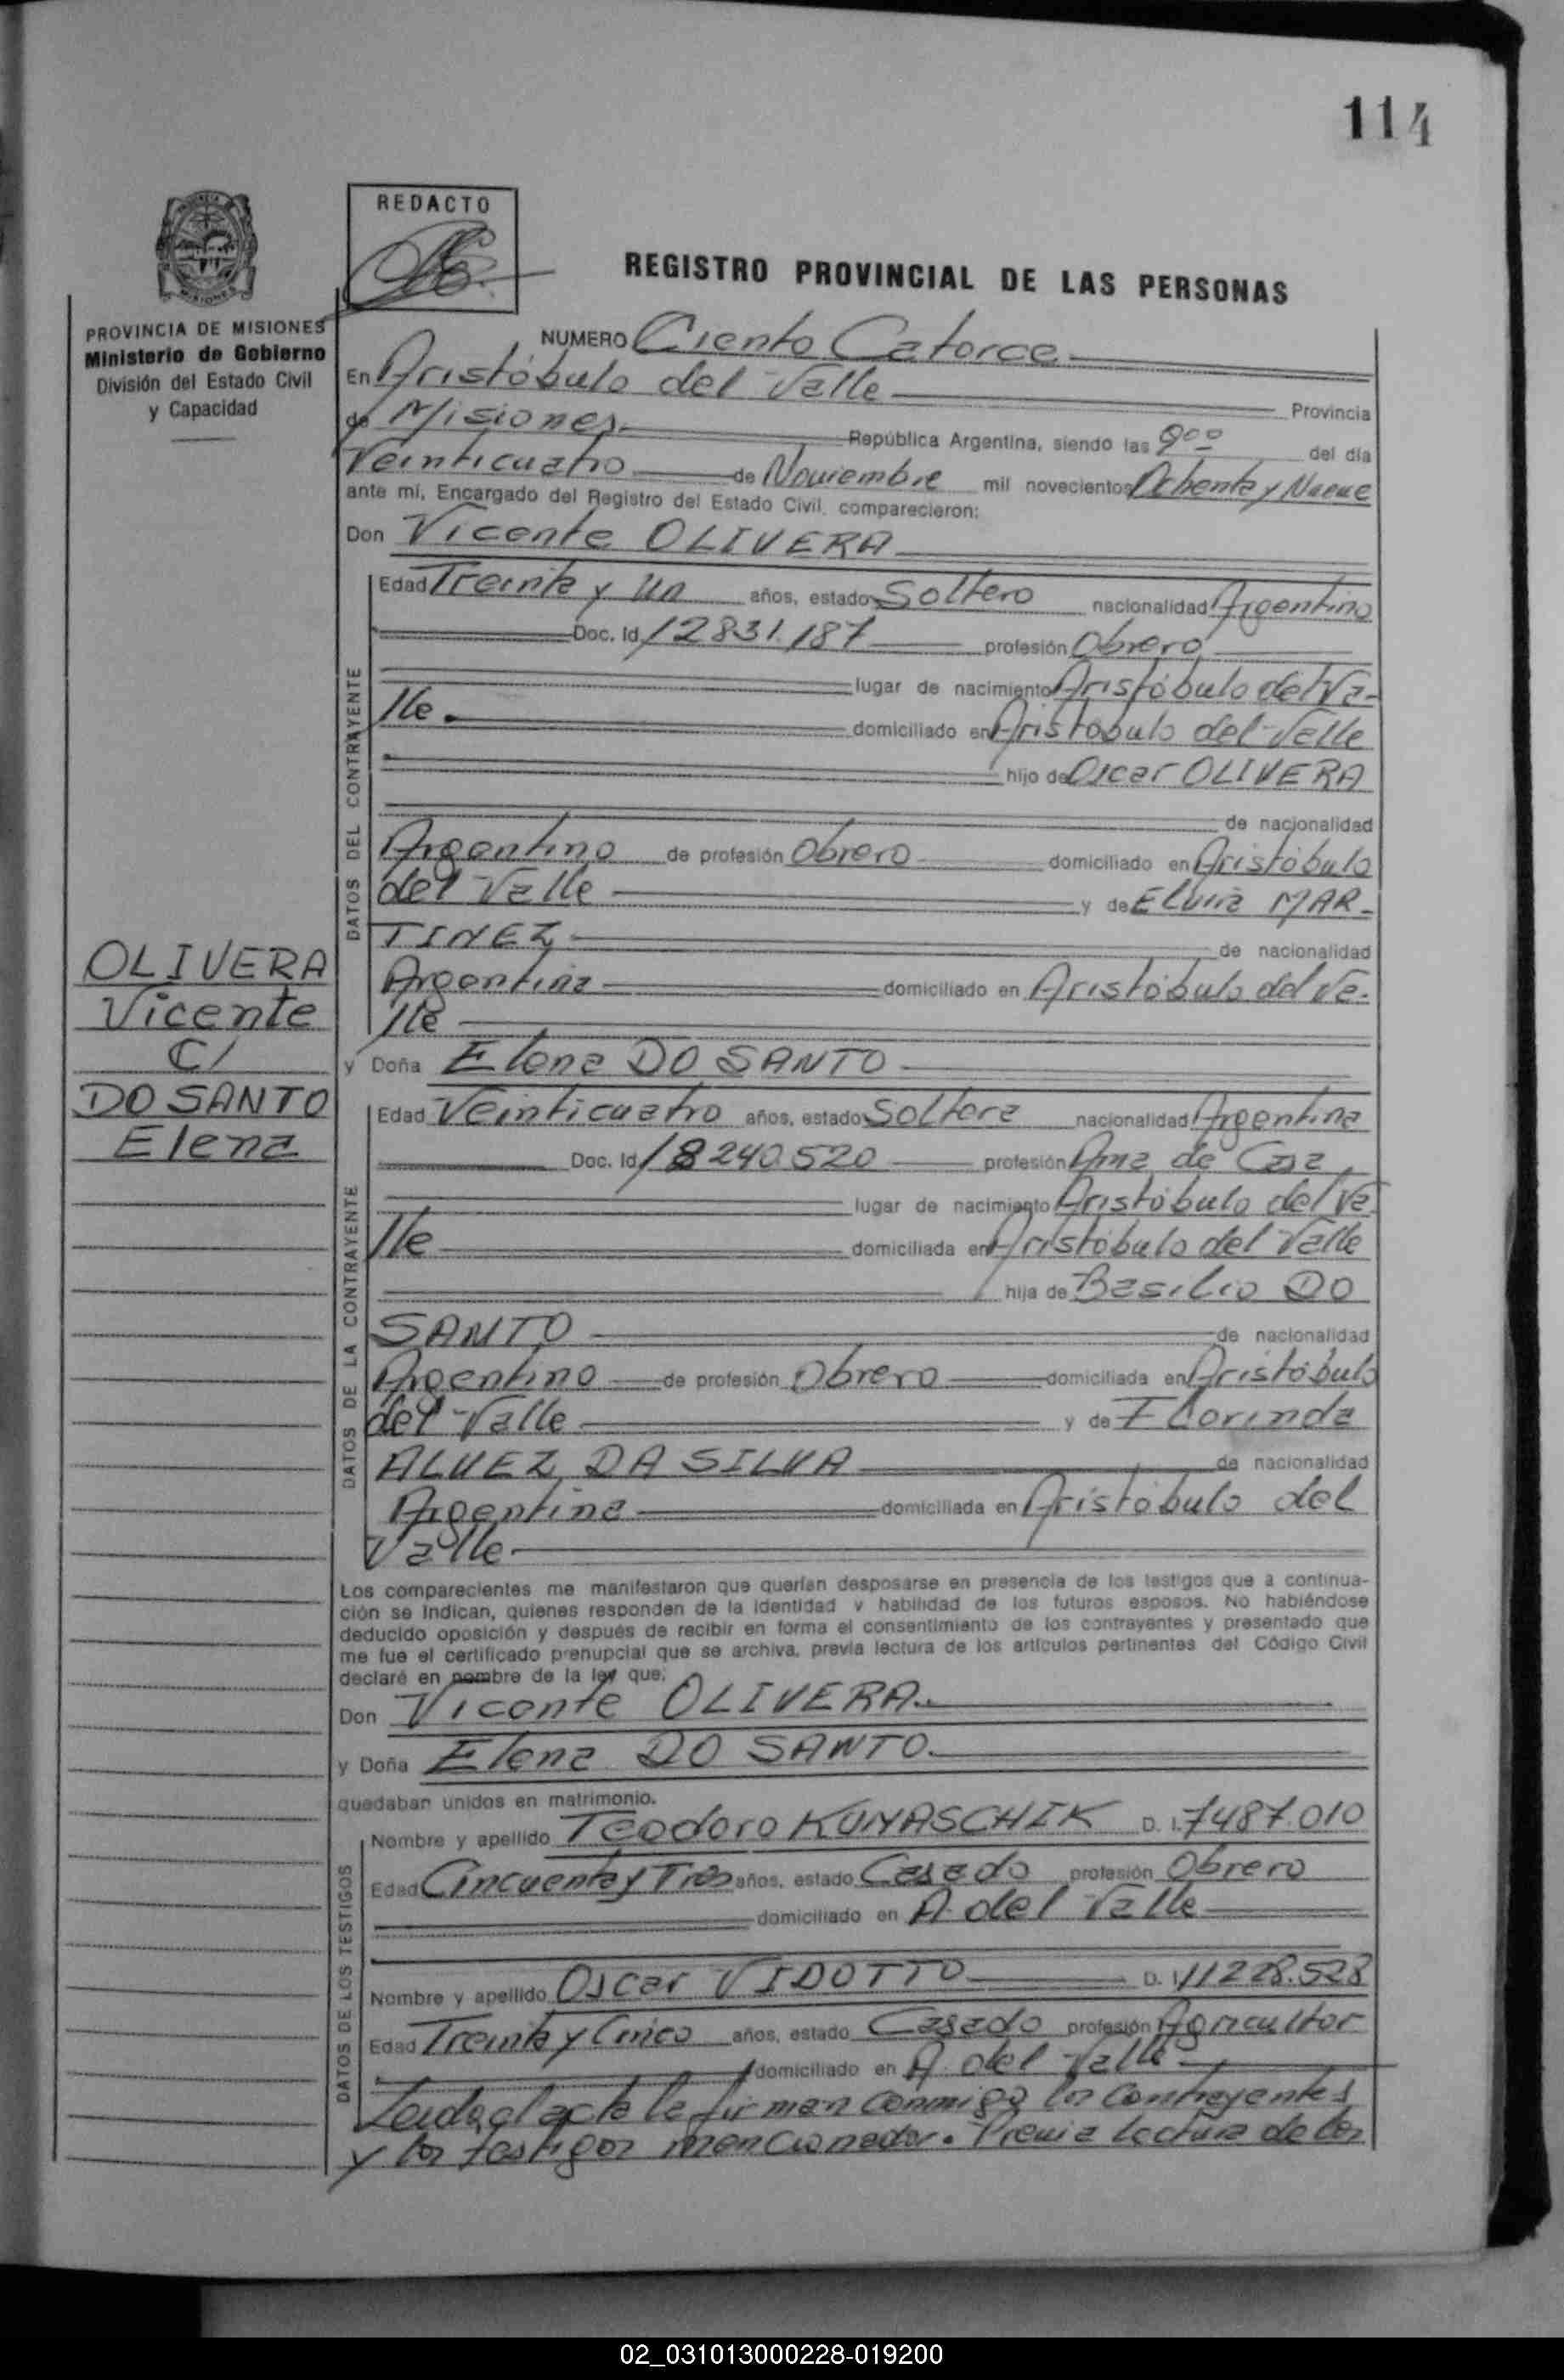 114
REDACTO
REGISTRO PROVINCIAL DE LAS PERSONAS
MISIONES
PROVINCIA DE MISIONES
Ministerio de Gobierno
División del Estado Civil
y Capacidad
NUMERO Ciento Catorce
En Aristóbulo del Valle Provincia
de Misiones República Argentina, siendo las 9ºº del día
Veinticuatro de Noviembre mil novecientos Ochenta y Nueve
ante mí, Encargado del Registro del Estado Civil, comparecieron:
Don Vicente OLIVERA
DATOS DEL CONTRAYENTE
Edad Treinta y Un años, estado Soltero nacionalidad Argentino
Doc. Id 12831.187 profesión Obrero
lugar de nacimiento Aristóbulo del Va-
lle domiciliado en Aristóbulo del Valle
hijo de Oscar OLIVERA
de nacionalidad
Argentino de profesión Obrero domiciliado en Aristóbulo
del Valle y de Elvira MAR-
TINEZ de nacionalidad
Argentina domiciliado en Aristóbulo del Va-
lle
OLIVERA
Vicente
C/
DO SANTO
Elena
y Doña Elena DO SANTO
DATOS DE LA CONTRAYENTE
Edad Veinticuatro años, estado Soltera nacionalidad Argentina
Doc. Id 18240.520 profesión Ama de Casa
lugar de nacimiento Aristóbulo del Va-
lle domiciliada en Aristóbulo del Valle
hija de Basilio DO
SANTO de nacionalidad
Argentino de profesión Obrero domiciliada en Aristóbulo
del Valle y de Florinda
ALVEZ DA SILVA de nacionalidad
Argentina domiciliada en Aristóbulo del
Valle
Los comparecientes me manifestaron que querían desposarse en presencia de los testigos que a continua-
ción se indican, quienes responden de la identidad y habilidad de los futuros esposos. No habiéndose
deducido oposición y después de recibir en forma el consentimiento de los contrayentes y presentado que
me fue el certificado prenupcial que se archiva, previa lectura de los artículos pertinentes del Código Civil
declaré en nombre de la ley que:
Don Vicente OLIVERA
y Doña Elena DO SANTO
quedaban unidos en matrimonio.
DATOS DE LOS TESTIGOS
Nombre y apellido Teodoro KUNASCHIK D. I. 7487.010
Edad Cincuenta y Tres años, estado Casado profesión Obrero
domiciliado en A. del Valle
Nombre y apellido Oscar VIDOTTO D. I. 11228.528
Edad Treinta y Cinco años, estado Casado profesión Agricultor
domiciliado en A. del Valle
Leida el acta la firman conmigo los contrayentes
y los testigos mencionados. Previa lectura de los
02_031013000228-019200